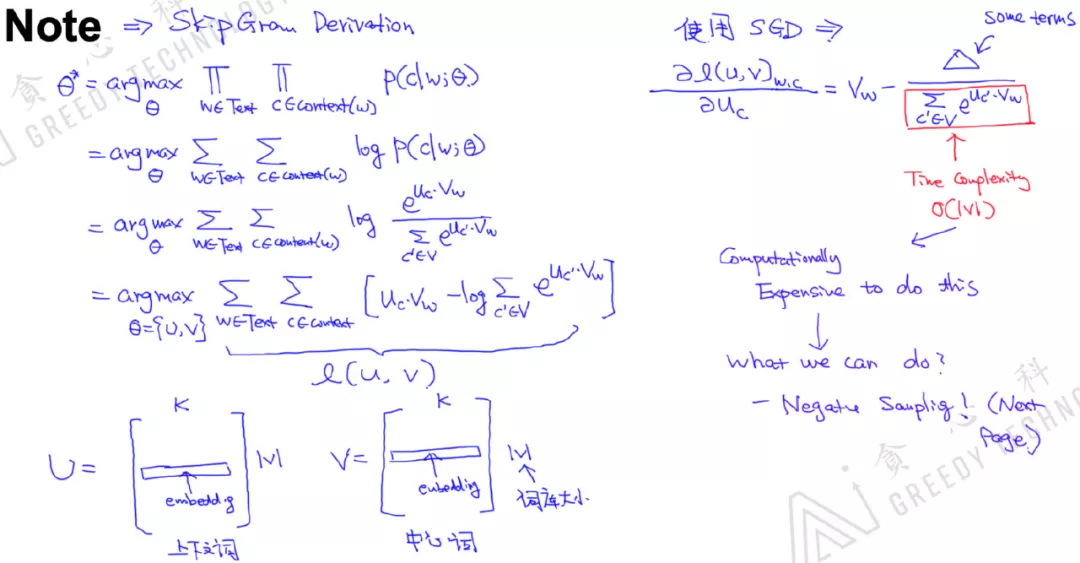 Note ⇒ Skip Gram Derivation
θ* = argmax_θ ∏_{w∈Text} ∏_{c∈Context(w)} p(c|w;θ)
= argmax_θ ∑_{w∈Text} ∑_{c∈Context(w)} log p(c|w;θ)
= argmax_θ ∑_{w∈Text} ∑_{c∈Context(w)} log e^{Uc·Vw} / ∑_{c'∈V} e^{Uc'·Vw}
= argmax_{θ={U,V}} ∑_{w∈Text} ∑_{c∈Context} [Uc·Vw - log ∑_{c'∈V} e^{Uc'·Vw}]
l(u, v)
K
U = [embeddig] |V|
上下文词
K
V = [eubeddig] |V|
中心词
词库大小
使用 SGD ⇒
some terms
∂l(u,v)_{w,c} / ∂Uc = Vw - △ / ∑_{c'∈V} e^{Uc'·Vw}
Time Complexity
O(|V|)
Computationally
Expensive to do this
what we can do?
- Negatve Samplig! (Next
Page)
貪心科
GREEDY TECHNOLOGY
貪心科
GREEDY TECHNO